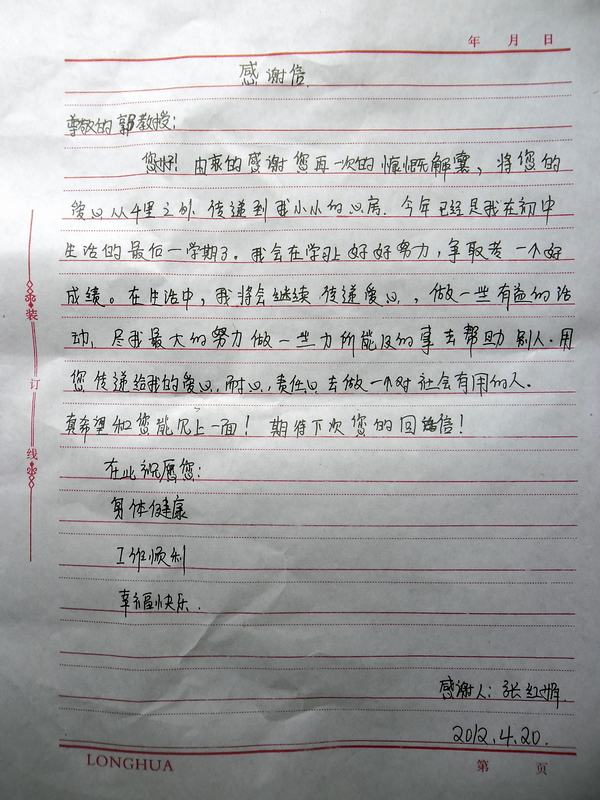 年 月 日
感谢信
尊敬的郭教授:
您好!由衷的感谢您再一次的慷慨解囊,将您的
爱心从千里之外传递到我小小的心房.今年已经是我在初中
生活的最后一学期了。我会在学习上好好努力,争取考一个好
成绩。在生活中,我将会继续传递爱心,,做一些有益的活
动,尽我最大的努力做一些力所能及的事去帮助别人.用
您传递给我的爱心,耐心,责任心去做一个对社会有用的人.
真希望和您能见上一面!期待下次您的回信!
在此祝愿您:
身体健康
工作顺利
幸福快乐.
感谢人:张红
2012.4.20.
装
订
线
LONGHUA
第 页